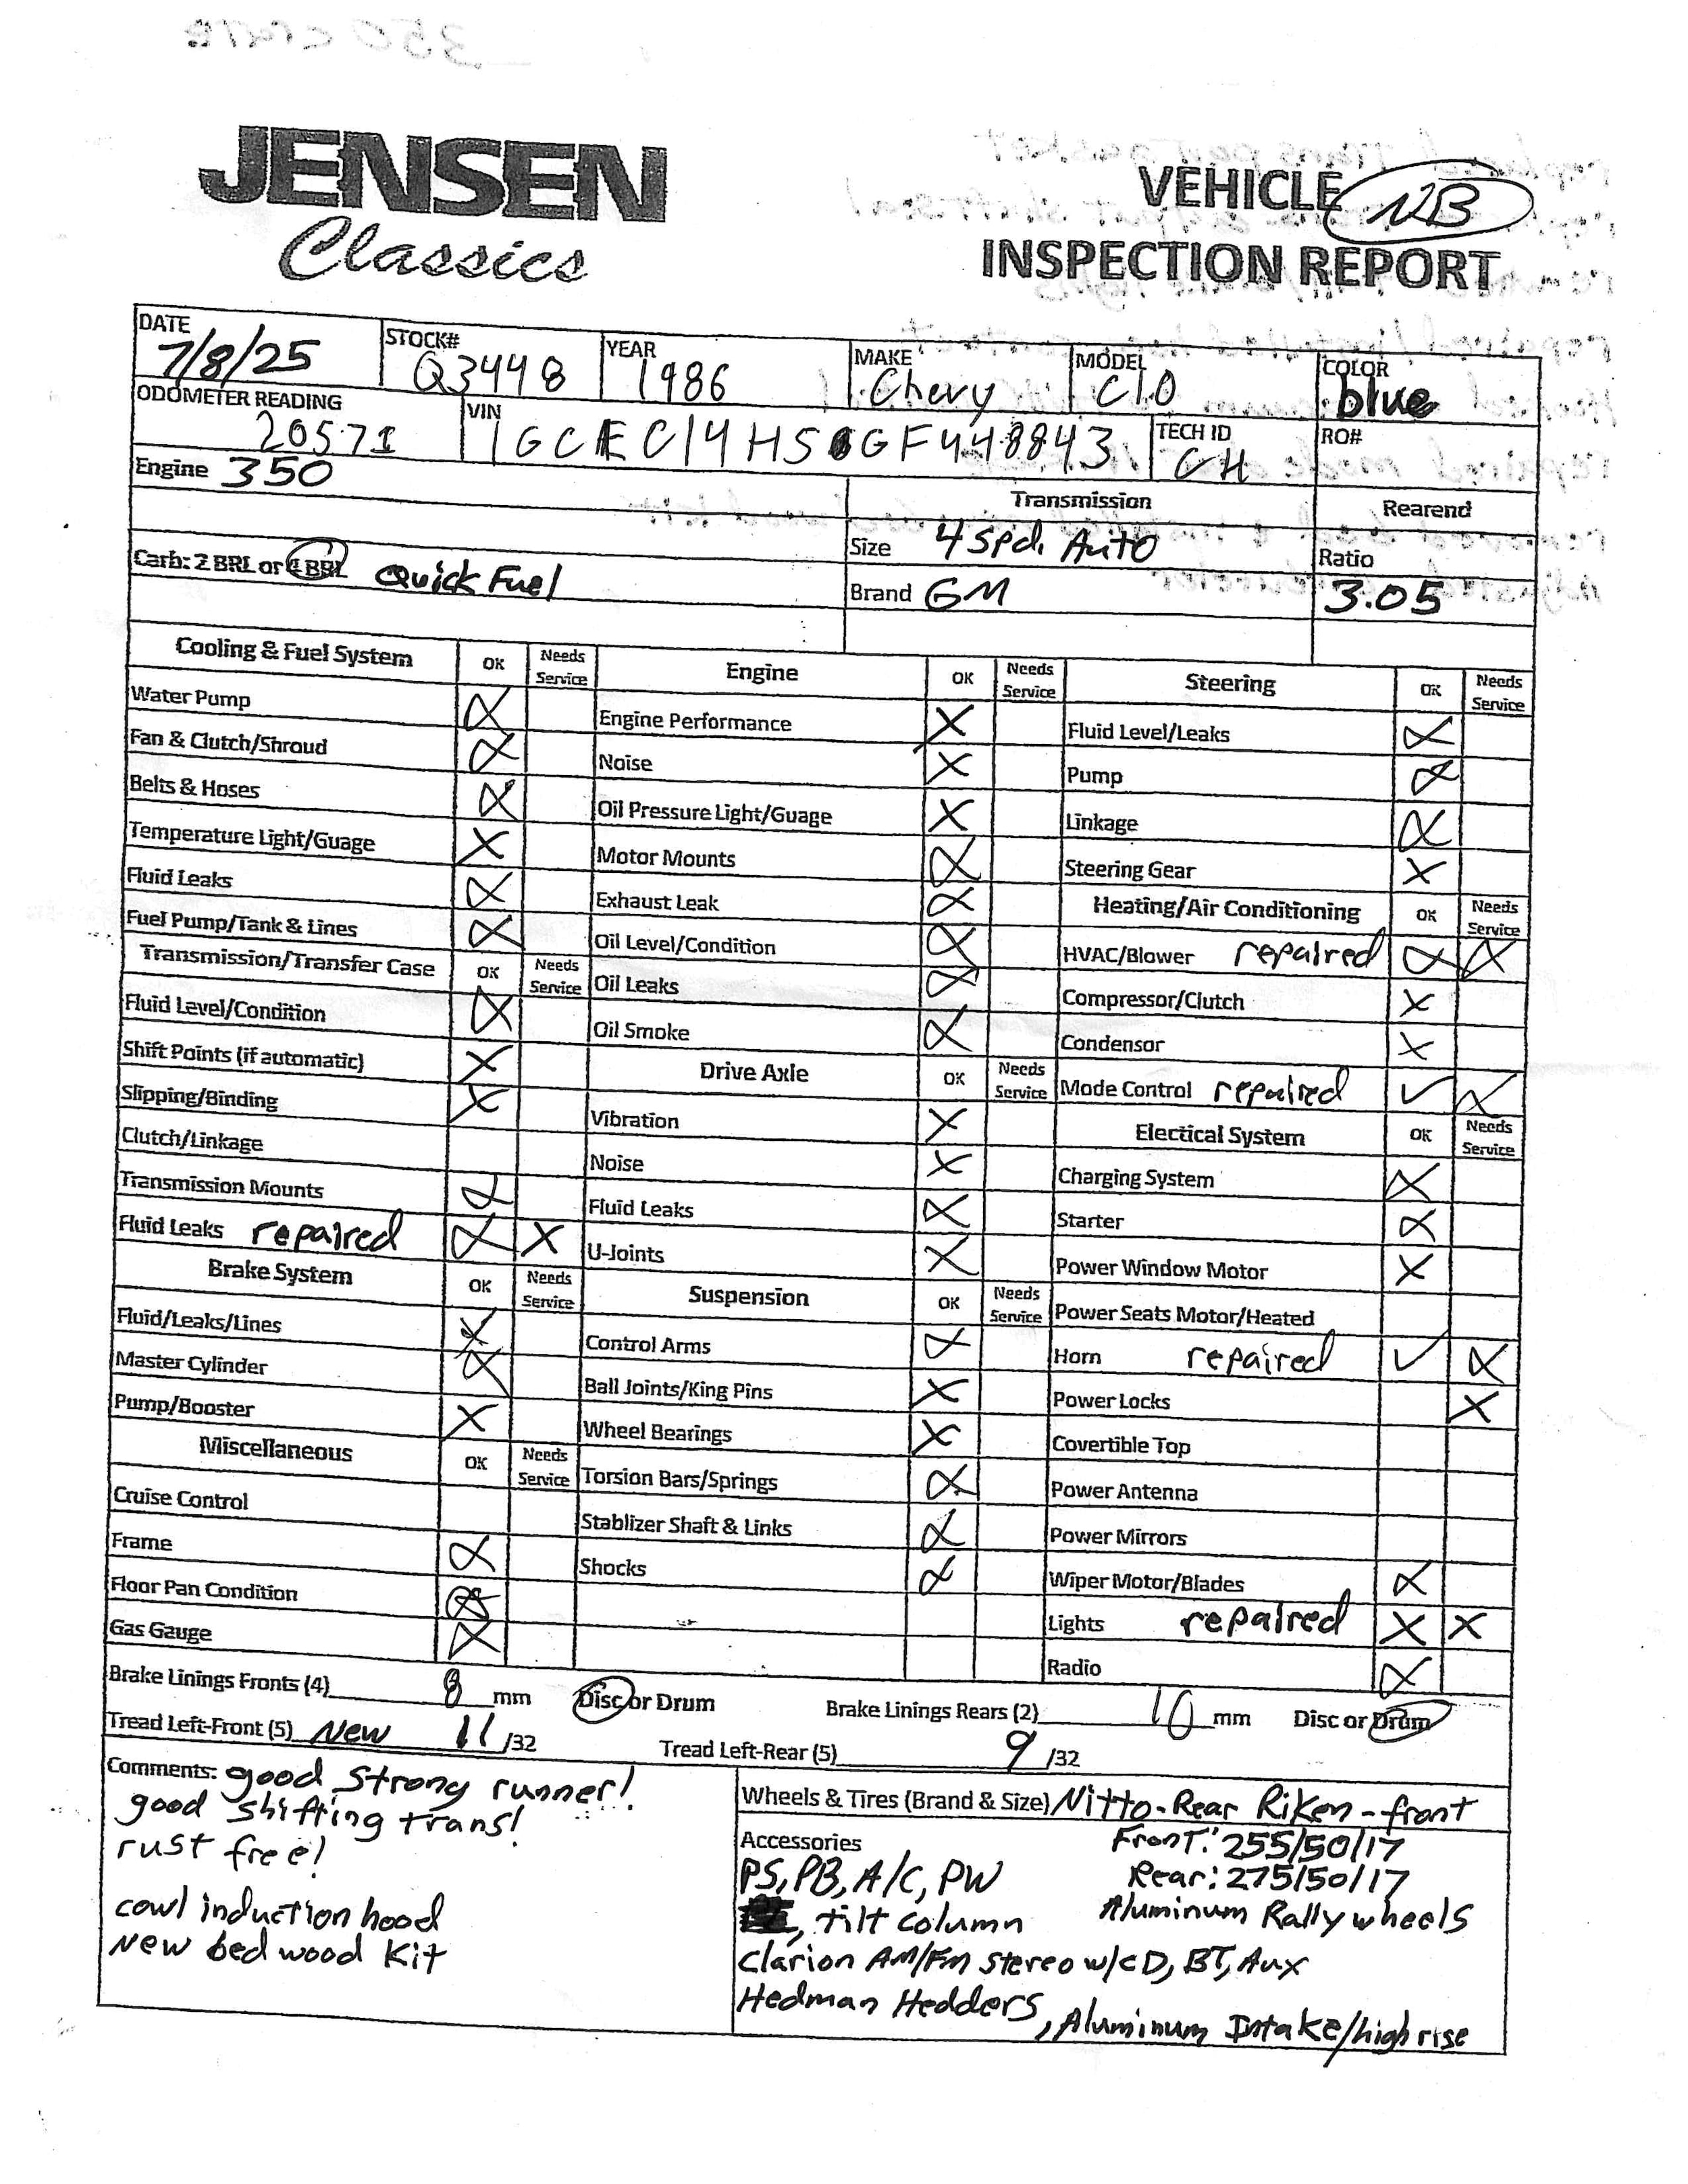 JENSEN
Classics
VEHICLE NB
INSPECTION REPORT
DATE 7/8/25 STOCK# Q3448 YEAR 1986 MAKE Chevy MODEL C10 COLOR blue
ODOMETER READING 20571 VIN 1GCEC14HSGF448843 TECH ID CH RO#
Engine 350
Transmission Rearend
Carb: 2 BRL or 4 BRL Quick Fuel Size 4 Spd. Auto Ratio
Brand GM 3.05
Cooling & Fuel System OK Needs Service
Water Pump X
Fan & Clutch/Shroud X
Belts & Hoses X
Temperature Light/Guage X
Fluid Leaks X
Fuel Pump/Tank & Lines X
Transmission/Transfer Case OK Needs Service
Fluid Level/Condition X
Shift Points (if automatic) X
Slipping/Binding X
Clutch/Linkage
Transmission Mounts X
Fluid Leaks repaired X X
Brake System OK Needs Service
Fluid/Leaks/Lines X
Master Cylinder X
Pump/Booster X
Miscellaneous OK Needs Service
Cruise Control
Frame X
Floor Pan Condition X
Gas Gauge X
Engine OK Needs Service
Engine Performance X
Noise X
Oil Pressure Light/Guage X
Motor Mounts X
Exhaust Leak X
Oil Level/Condition X
Oil Leaks X
Oil Smoke X
Drive Axle OK Needs Service
Vibration X
Noise X
Fluid Leaks X
U-Joints X
Suspension OK Needs Service
Control Arms X
Ball Joints/King Pins X
Wheel Bearings X
Torsion Bars/Springs X
Stablizer Shaft & Links X
Shocks X
Steering OK Needs Service
Fluid Level/Leaks X
Pump X
Linkage X
Steering Gear X
Heating/Air Conditioning OK Needs Service
HVAC/Blower repaired X X
Compressor/Clutch X
Condensor X
Mode Control repaired ✓ X
Electical System OK Needs Service
Charging System X
Starter X
Power Window Motor X
Power Seats Motor/Heated
Horn repaired ✓ X
Power Locks X
Covertible Top
Power Antenna
Power Mirrors
Wiper Motor/Blades X
Lights repaired X X
Radio X
Brake Linings Fronts (4) 8 mm Disc or Drum Brake Linings Rears (2) 10 mm Disc or Drum
Tread Left-Front (5) New 11 /32 Tread Left-Rear (5) 9 /32
Comments: good strong runner!
good shifting trans!
rust free!
cowl induction hood
New bed wood Kit
Wheels & Tires (Brand & Size) Nitto-Rear Riken-front
Front: 255/50/17
Rear: 275/50/17
Aluminum Rally wheels
Accessories
PS, PB, A/C, PW
, tilt column
Clarion AM/FM Stereo w/CD, BT, Aux
Hedman Hedders, Aluminum Intake/high rise